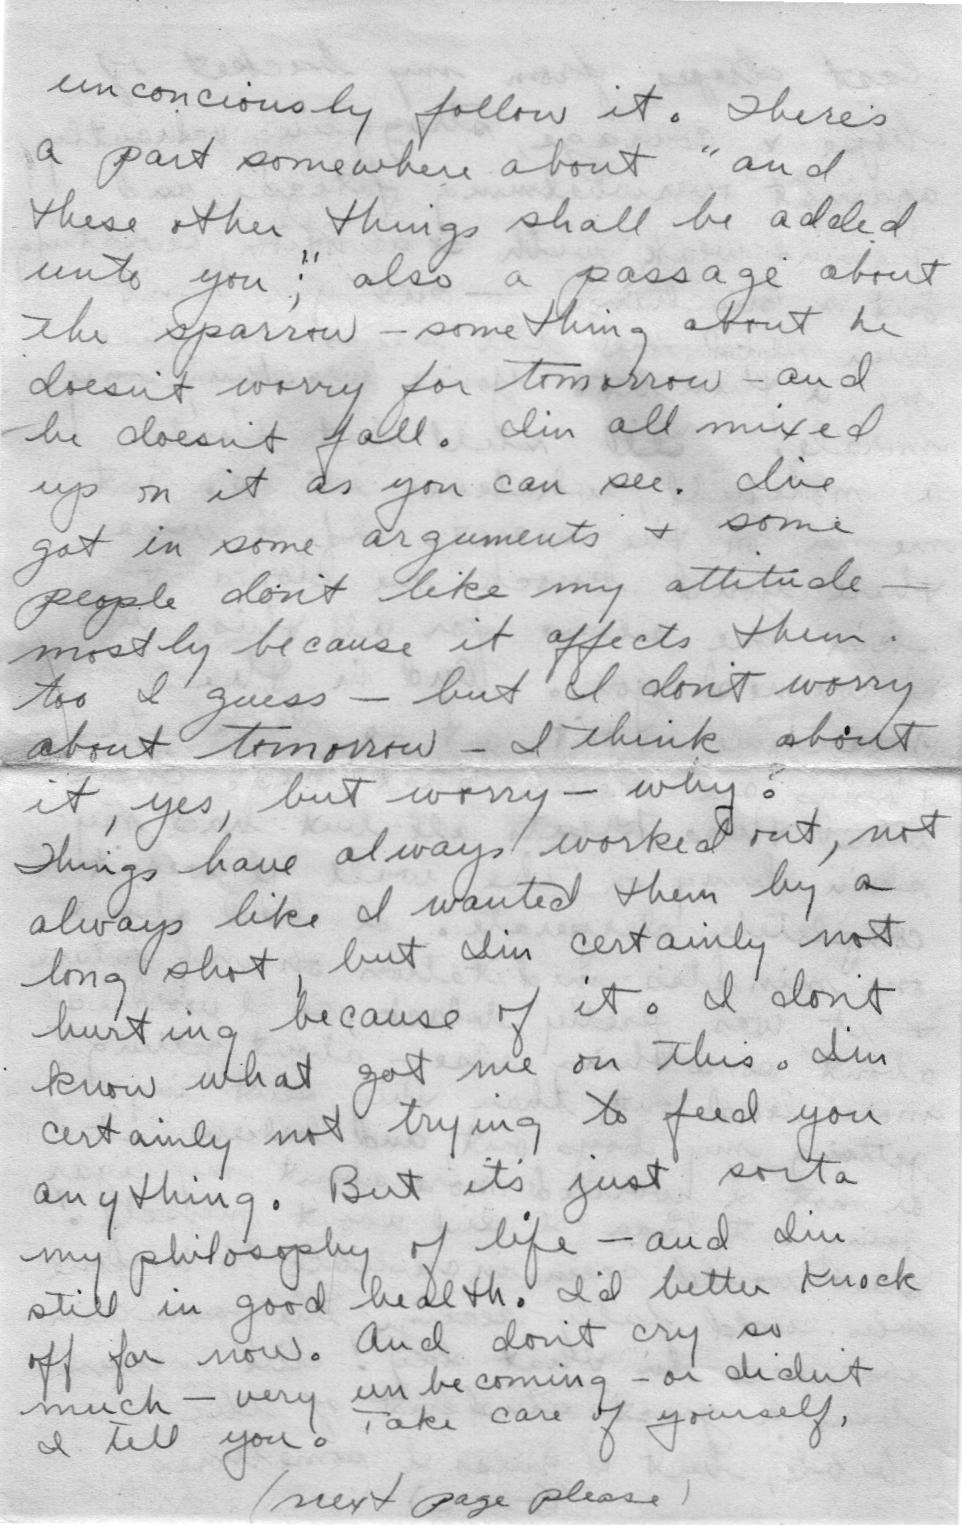 unconciously follow it. There's
a part somewhere about "and
these other things shall be added
unto you"; also a passage about
the sparrow - something about he
doesn't worry for tomorrow - and
he doesn't fall. I'm all mixed
up on it as you can see. I've
got in some arguments + some
people don't like my attitude —
mostly because it affects them
too I guess - but I don't worry
about tomorrow - I think about
it, yes, but worry - why?
Things have always worked out, not
always like I wanted them by a
long shot, but I'm certainly not
hurting because of it. I don't
know what got me on this. I'm
certainly not trying to feed you
anything. But it's just sorta
my philosophy of life - and I'm
still in good health. I'd better knock
off for now. And don't cry so
much - very unbecoming - or didn't
I tell you. Take care of yourself.
(next page please)